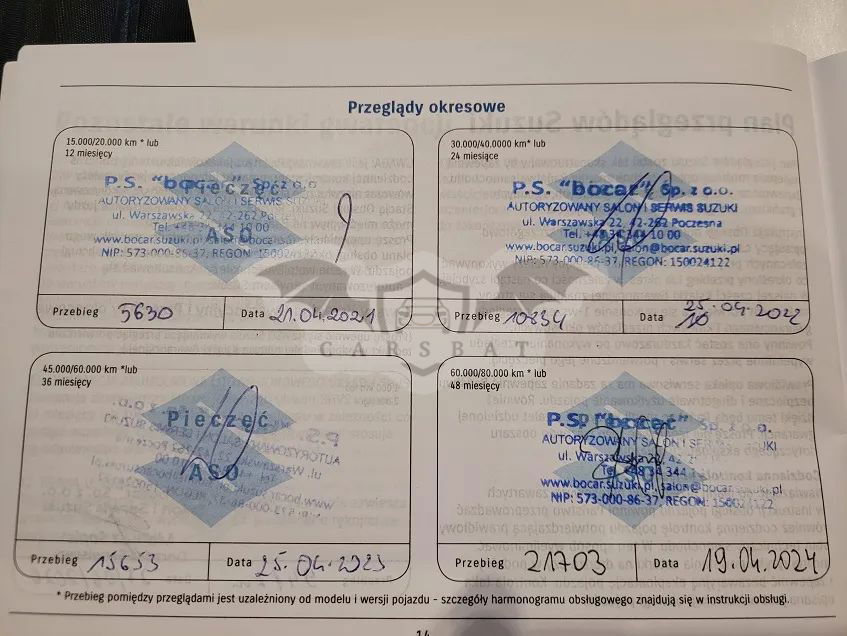 Przeglądy okresowe
15.000/20.000 km * lub
12 miesięcy
P.S. "bocar" Sp. z o.o.
Pieczęć
AUTORYZOWANY SALON I SERWIS SUZUKI
ul. Warszawska 22, 42-262
ASO
www.bocar.suzuki.pl
NIP: 573-000-86-37, REGON:
Przebieg 5630 Data 21.04.2021
30.000/40.000 km* lub
24 miesiące
P.S. "bocar" Sp. z o.o.
AUTORYZOWANY SALON I SERWIS SUZUKI
ul. Warszawska 22, 42-262 Poczesna
Tel. +48 34 344 10 00
www.bocar.suzuki.pl, salon@bocar.suzuki.pl
NIP: 573-000-86-37, REGON: 150024122
Przebieg 10834 Data 25.04.2022
CARSBAT
45.000/60.000 km *lub
36 miesięcy
Pieczęć
ASO
Przebieg 15653 Data 25.04.2023
60.000/80.000 km * lub
48 miesięcy
P.S. "bocar" Sp. z o.o.
AUTORYZOWANY SALON I SERWIS SUZUKI
ul. Warszawska
Tel. +48 34 344
www.bocar.suzuki.pl, salon@bocar.suzuki.pl
NIP: 573-000-86-37, REGON: 150024122
Przebieg 21703 Data 19.04.2024
* Przebieg pomiędzy przeglądami jest uzależniony od modelu i wersji pojazdu - szczegóły harmonogramu obsługowego znajdują się w instrukcji obsługi.
14